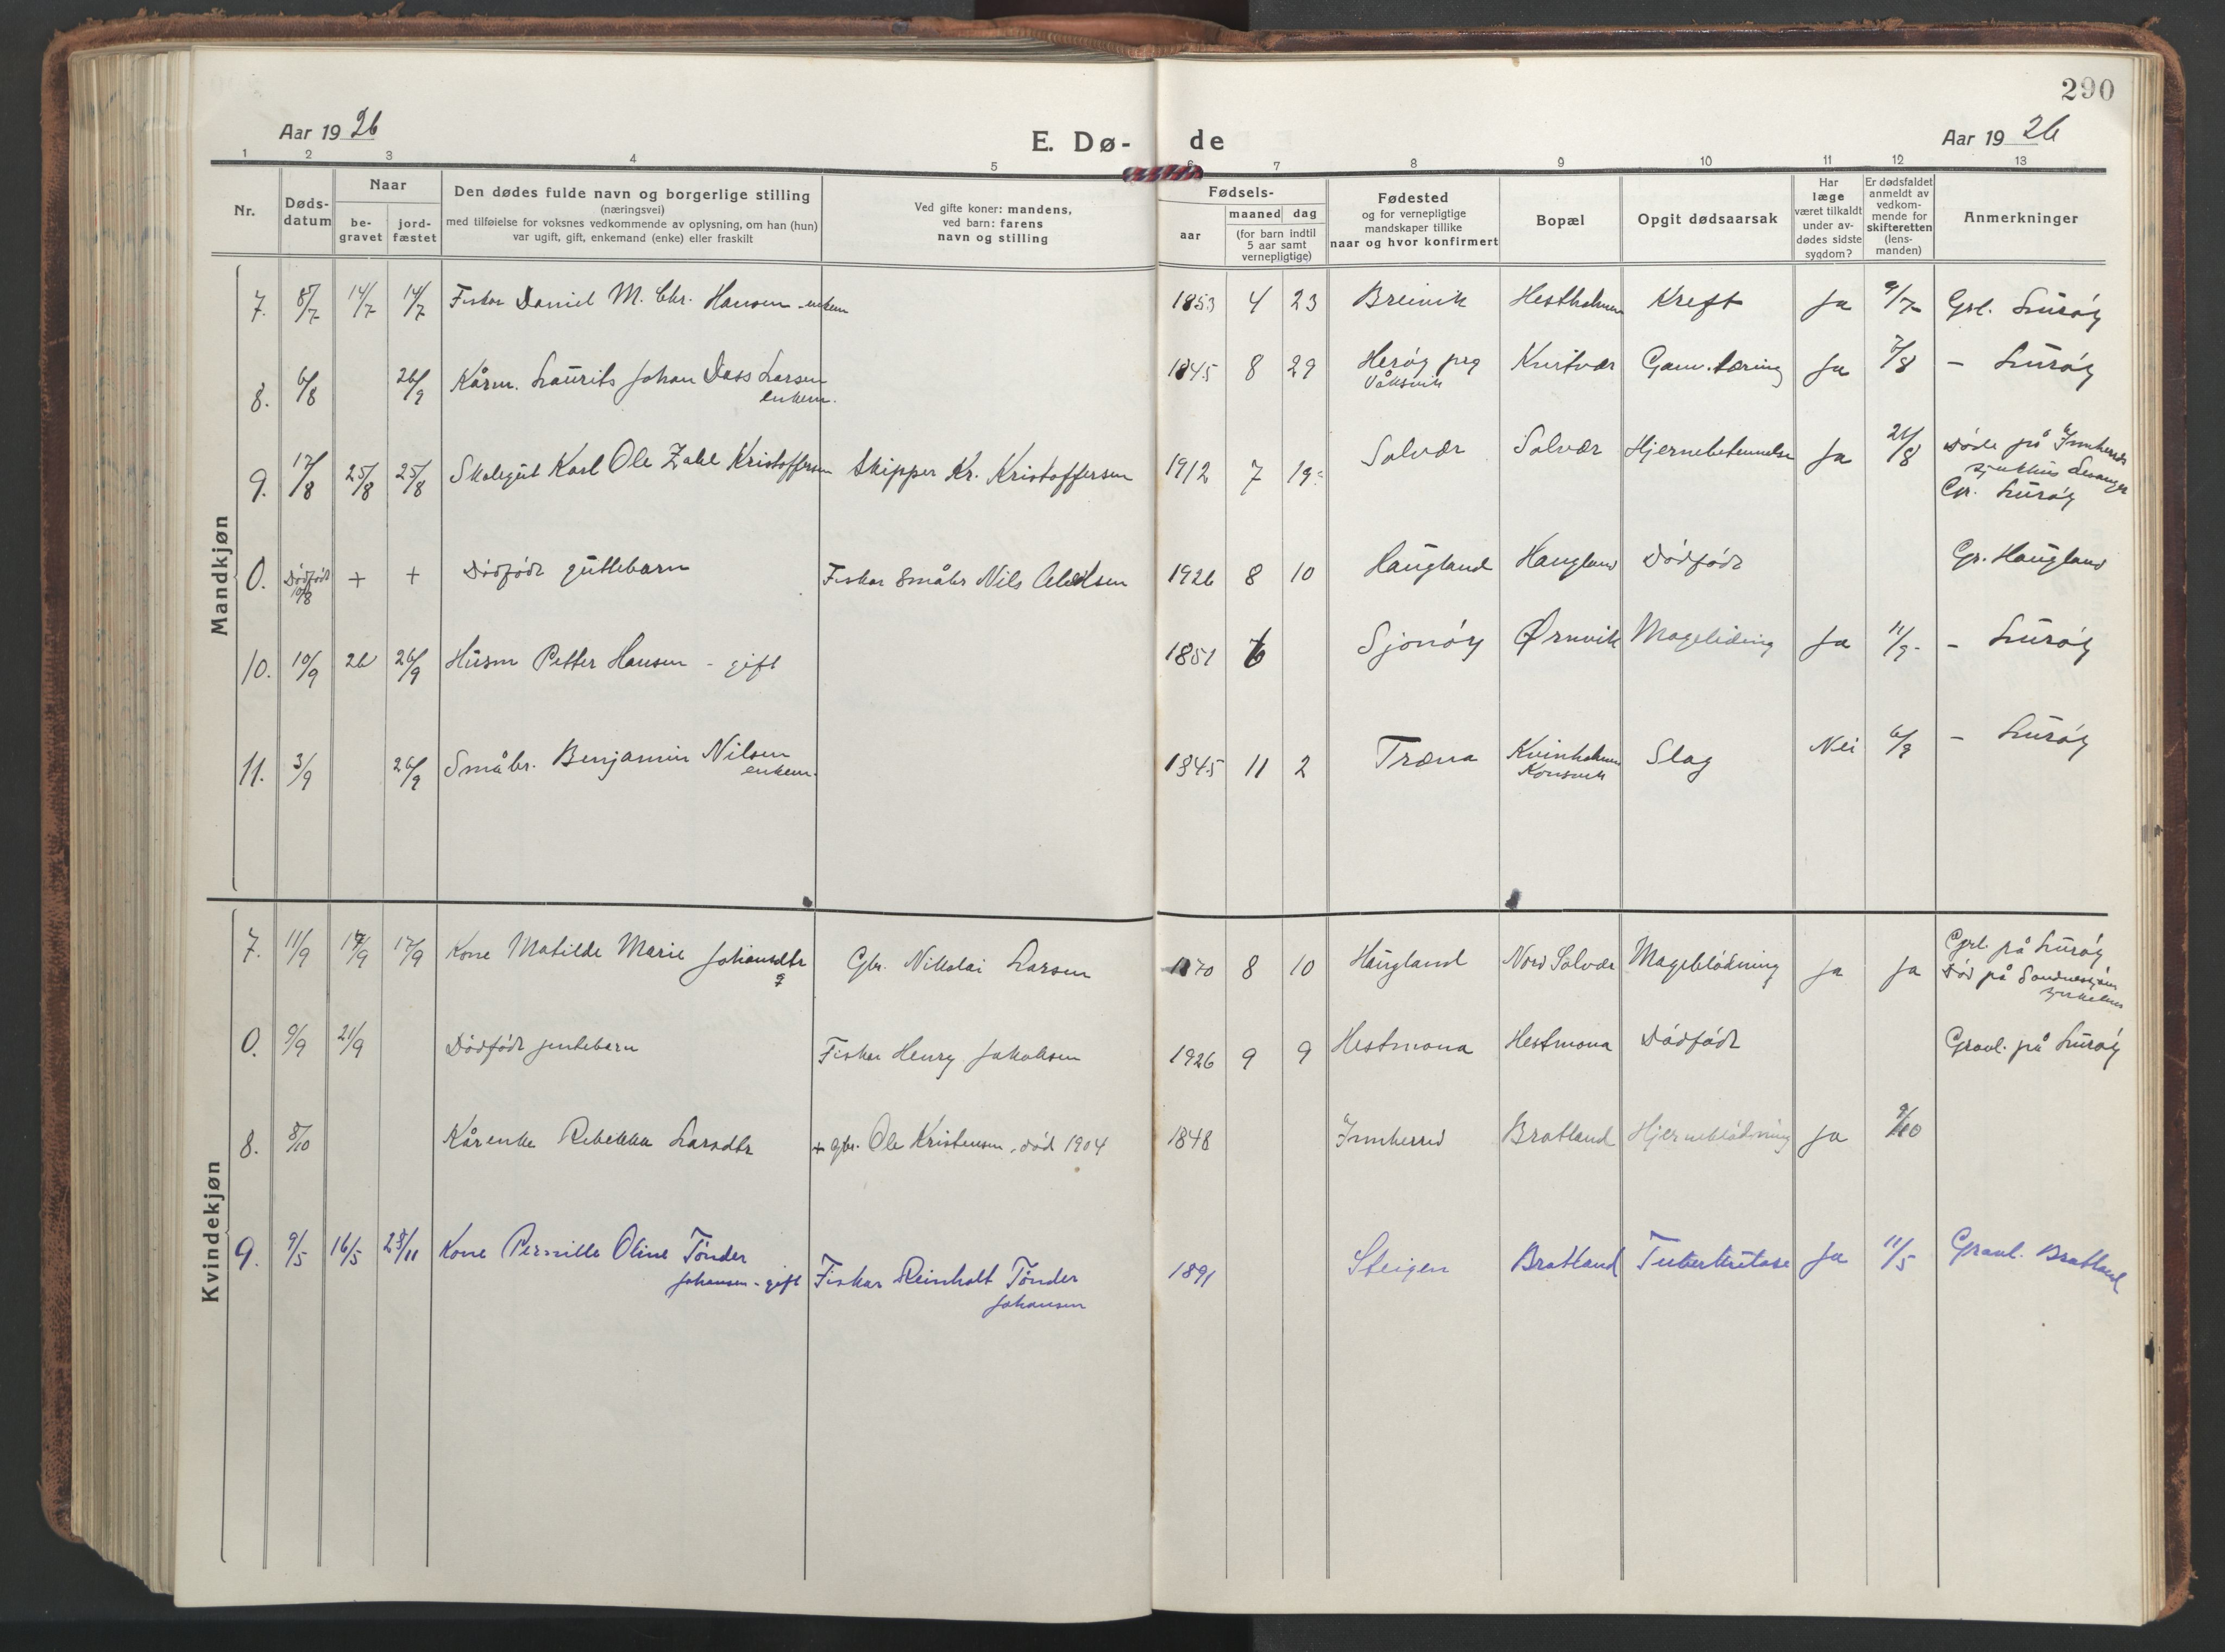 290
Aar 19 26
E. Dø- de
Aar 19 26
1 2 3 4 5 6 7 8 9 10 11 12 13
Nr.
Døds-
datum
Naar
be-
gravet
jord-
fæstet
Den dødes fulde navn og borgerlige stilling
(næringsvei)
med tilføielse for voksnes vedkommende av oplysning, om han (hun)
var ugift, gift, enkemand (enke) eller fraskilt
Ved gifte koner: mandens,
ved barn: farens
navn og stilling
Fødsels-
aar
maaned dag
(for barn indtil
5 aar samt
vernepligtige)
Fødested
og for vernepligtige
mandskaper tillike
naar og hvor konfirmert
Bopæl
Opgit dødsaarsak
Har
læge
været tilkaldt
under av-
dødes sidste
sygdom?
Er dødsfaldet
anmeldt av
vedkom-
mende for
skifteretten
(lens-
manden)
Anmerkninger
Mandkjøn
7. 8/7 14/7 14/7 Fisker Daniel M. Chr. Hansen - enkem 1853 4 23 Breivik Hestholmen Kreft Ja 9/7 Grl. Lurøy
8. 6/8 26/9 Kårm. Laurits Johan Dass Larsen
enkem. 1845 8 29 Herøy prg
Våksvik Kvitvær Gam. tæring Ja 7/8 - Lurøy
9. 17/8 25/8 25/8 Skolegut Karl Ole Zahl Kristoffersen Skipper Kr. Kristoffersen 1912 7 19 Solvær Solvær Hjernebetennelse Ja 21/8 Døde på Innherreds
sjukhus Levanger
Gr. Lurøy
0. Dødfødt
10/8 + + Dødfødt guttebarn Fisker Småbr Nils 1926 8 10 Haugland Haugland Dødfødt Gr. Haugland
10. 10/9 26 26/9 Husm Petter Hansen - gift 1851 6 Sjonøy Ørnvik Mageliding Ja 11/9 - Lurøy
11. 3/9 26/9 Småbr. Benjamin Nilsen
enkem. 1845 11 2 Træna Kvinholmen
Konsvik Slag Nei 6/9 - Lurøy
Kvindekjøn
7. 11/9 17/9 17/9 Kone Matilde Marie Johansdtr
g Gbr. Nikolai Larsen 1870 8 10 Haugland Nord Solvær Mageblødning Ja Ja Grl. på Lurøy
Død på Sandnessjøen
sjukehus
0. 9/9 21/9 Dødfødt jentebarn Fisker Henry Jakobsen 1926 9 9 Hestmona Hestmona Dødfødt Gravl. på Lurøy
8. 8/10 Kårenke Rebekka Larsdtr + gbr. Ole Kristensen, død 1904 1848 Innherred Bratland Hjerneblødning Ja 9/10
9. 9/5 16/5 28/11 Kone Pernille Oline Tønder
Johansen - gift Fisker Reinholt Tønder
Johansen 1891 Steigen Bratland Tuberkulose Ja 11/5 Gravl. Bratland